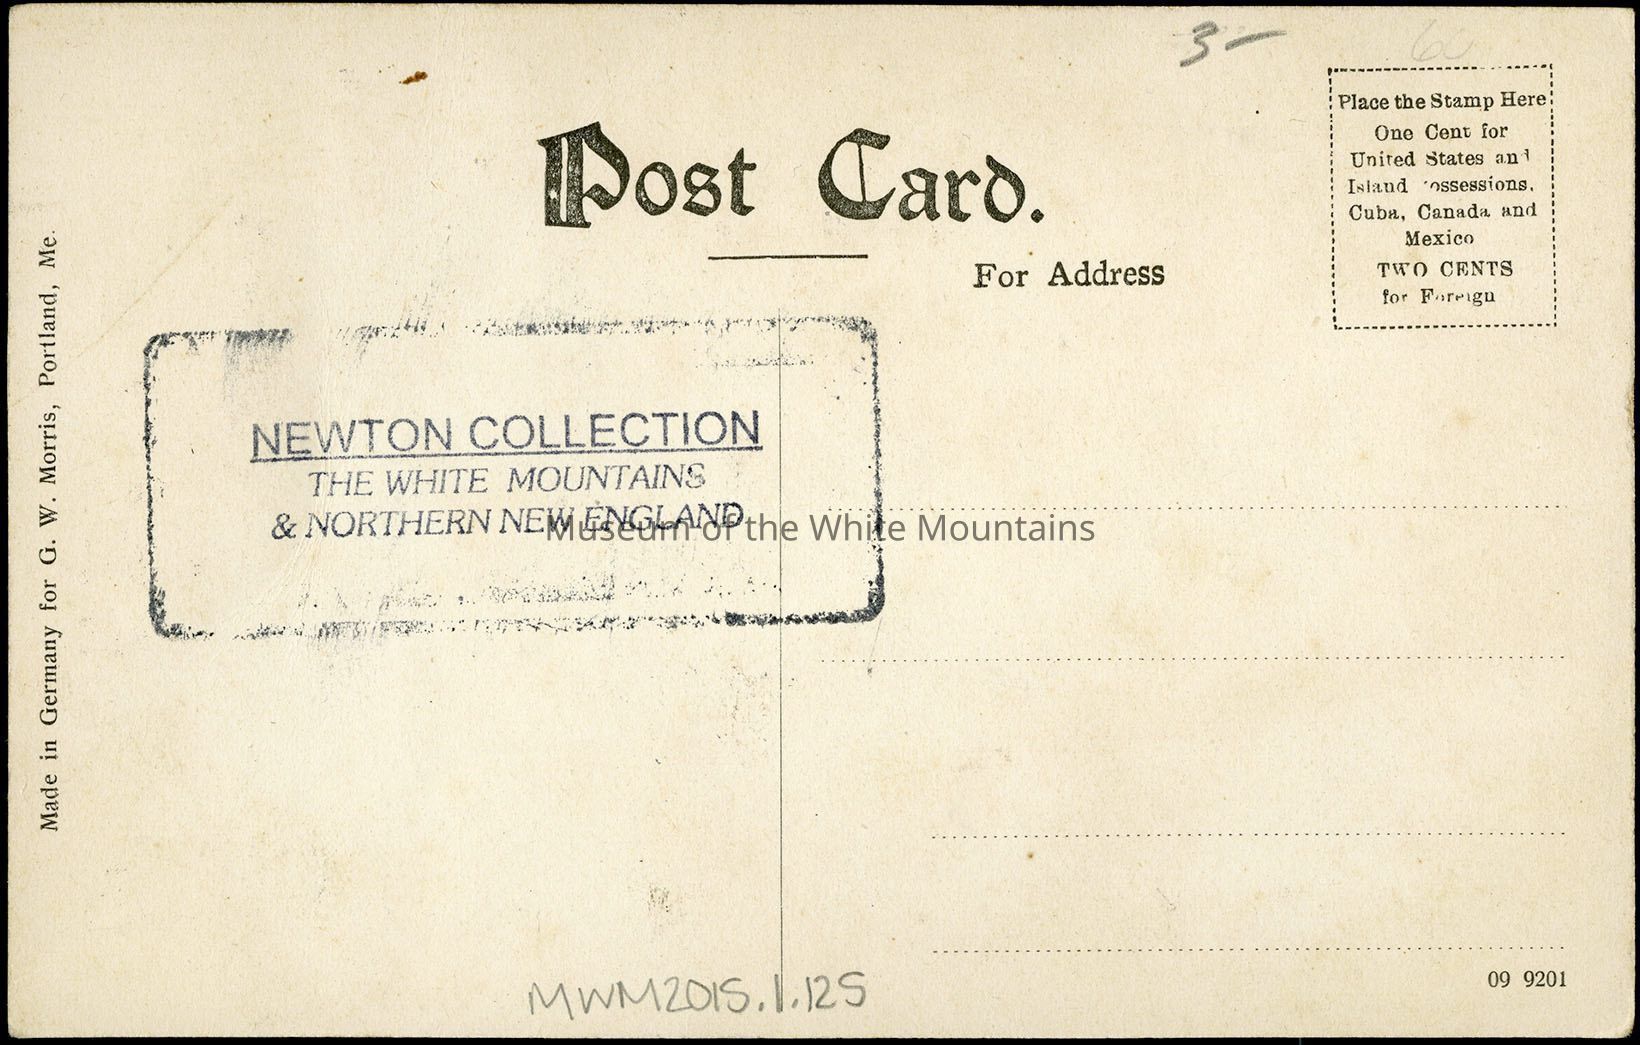 3-
Post Card.
For Address
Place the Stamp Here
One Cent for
United States and
Island ossessions,
Cuba, Canada and
Mexico
TWO CENTS
for Foreign
Made in Germany for G. W. Morris, Portland, Me.
NEWTON COLLECTION
THE WHITE MOUNTAINS
& NORTHERN NEW ENGLAND
Museum of the White Mountains
09 9201
MWM2015.1.125